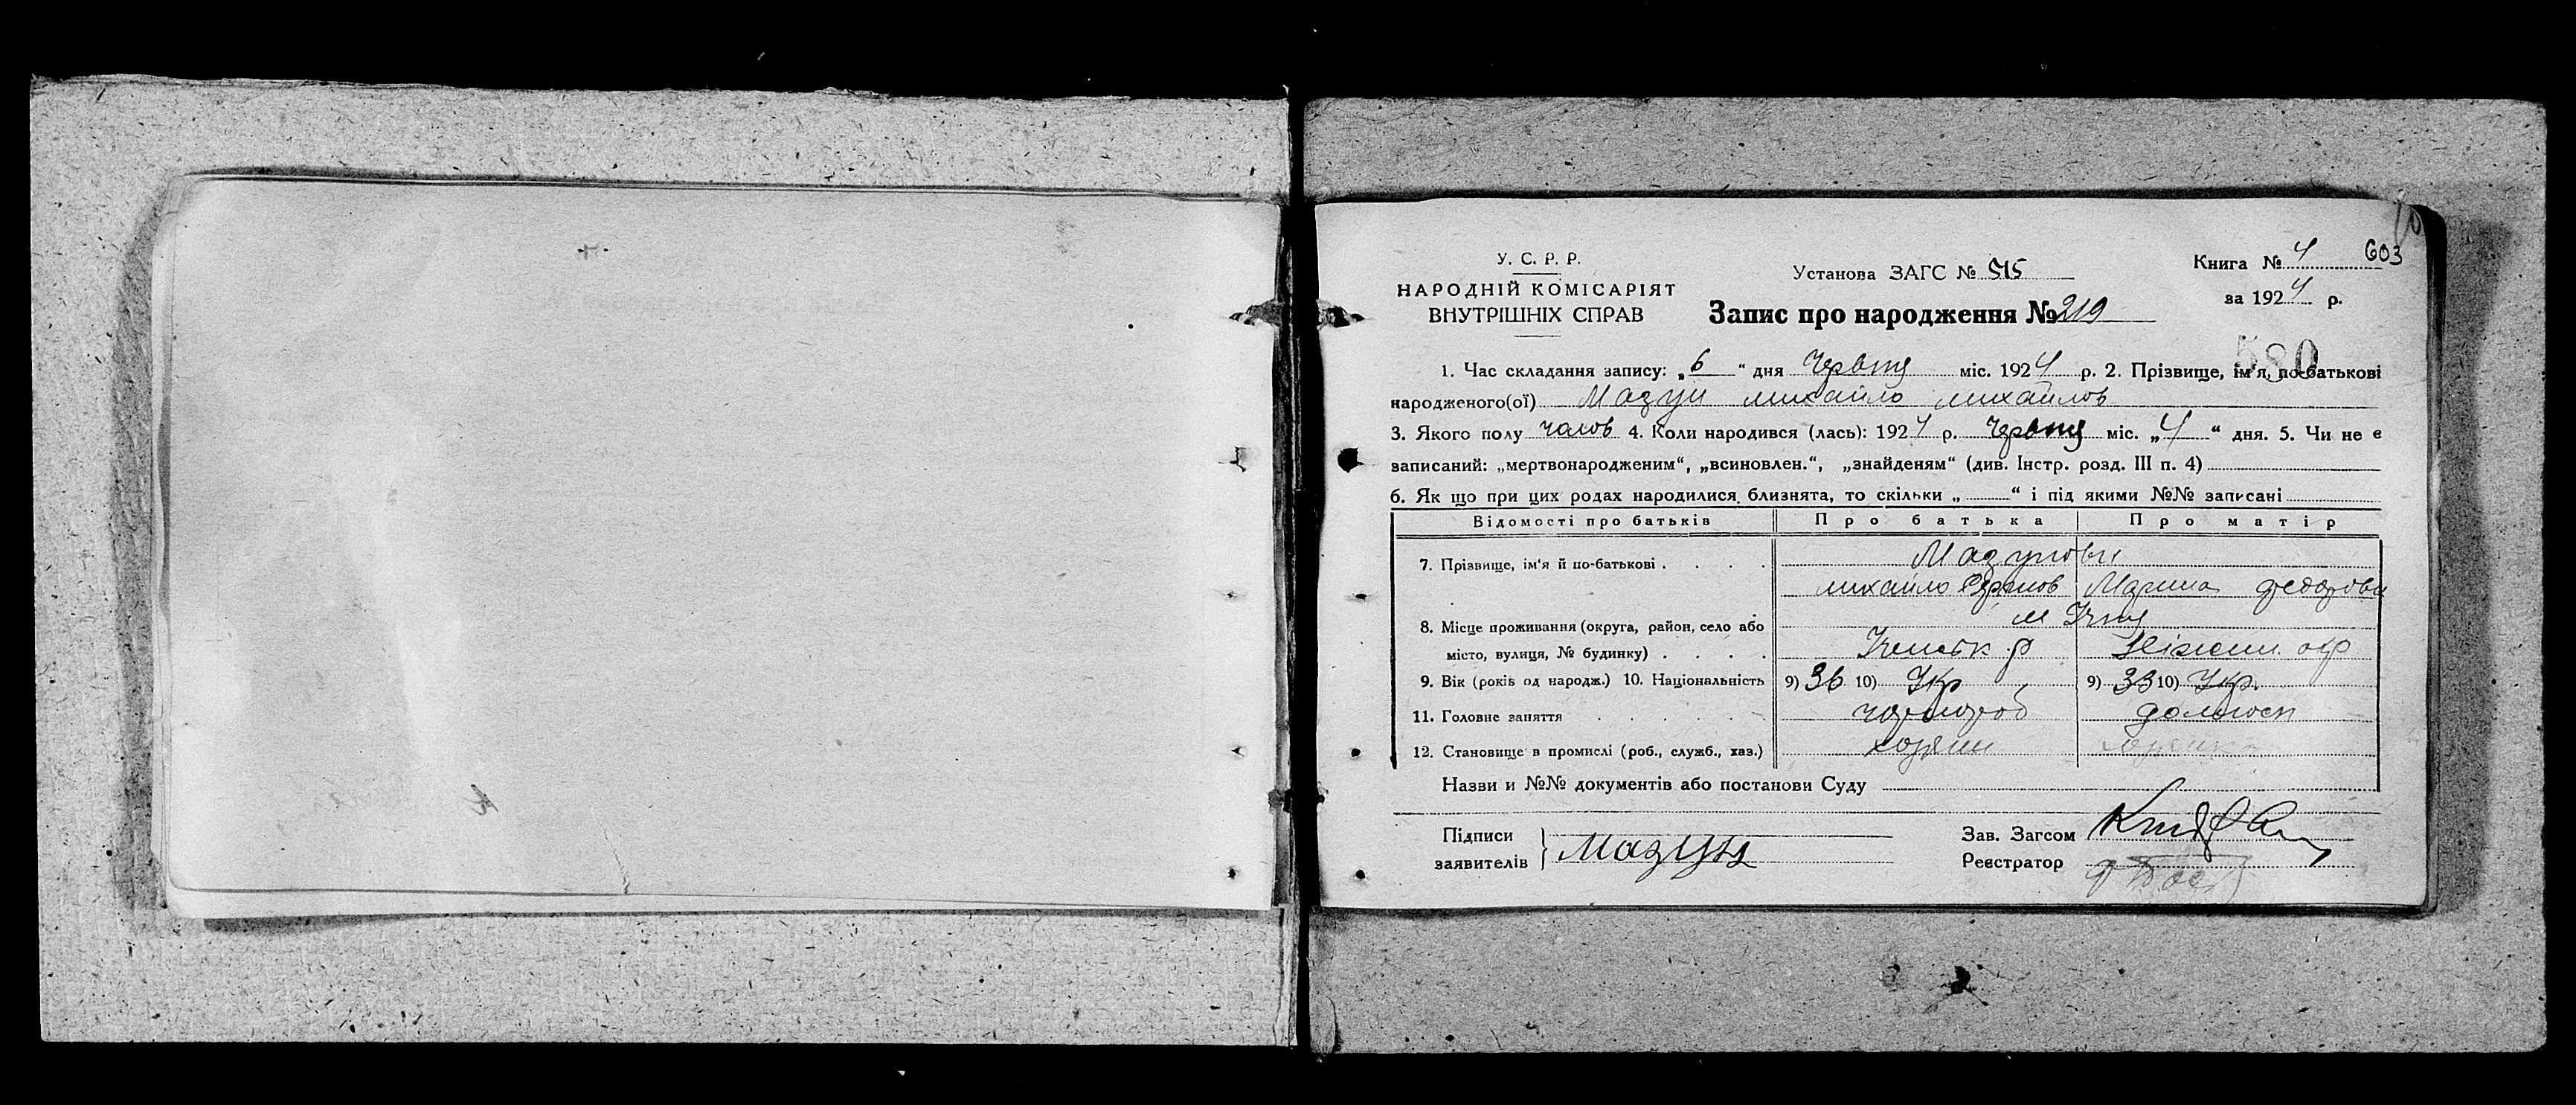 У. С. Р. Р.
НАРОДНІЙ КОМІСАРІЯТ
ВНУТРІШНІХ СПРАВ
Установа ЗАГС № 515
Запис про народження № 219
Книга № 4 603
за 1924 р.
580
1. Час складання запису: „6“ дня Червня міс. 1924 р. 2. Прізвище, ім'я, по-батькові
народженого(ої) Мазун михайло михайлов
3. Якого полу чолов 4. Коли народився (лась): 1924 р. Червня міс. „4“ дня. 5. Чи не є
записаний: „мертвонародженим“, „всиновлен.“, „знайденям“ (див. Інстр. розд. III п. 4)
6. Як що при цих родах народилися близнята, то скільки „ “ і під якими №№ записані
Відомості про батьків Про батька Про матір
7. Прізвище, ім'я й по-батькові . . . . Мазунови
михайло Марина федорови
8. Місце проживання (округа, район, село або м Ічня
місто, вулиця, № будинку) . . . . Ічнськ р Ніжин окр
9. Вік (років од народж.) 10. Національність 9) 36 10) Укр 9) 33 10) Укр.
11. Головне заняття . . . . . . хороб домгосп
12. Становище в промислі (роб., служб., хаз.) хозяин хозяйка
Назви и №№ документів або постанови Суду
Підписи
заявителів Мазун
Зав. Загсом
Реєстратор